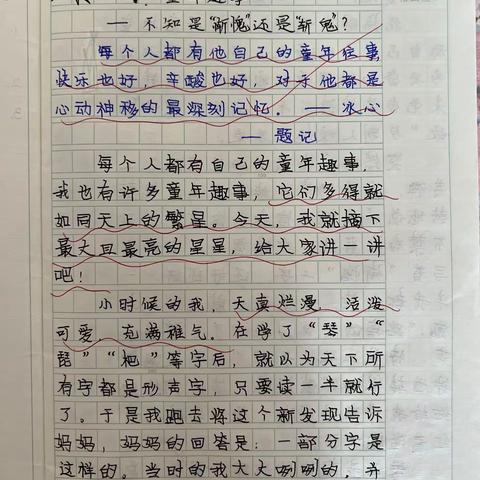 ——不知是“渐愧”还是“斩鬼”？
每个人都有他自己的童年往事
快乐也好，辛酸也好，对于他都是
心动神移的最深刻记忆。——冰心
——题记
每个人都有自己的童年趣事，
我也有许多童年趣事，它们多得就
如同天上的繁星。今天，我就摘下
最大且最亮的星星，给大家讲一讲
吧！
小时候的我，天真烂漫，活泼
可爱，充满稚气。在学了“琴”“
琵”“杷”等字后，就以为天下所
有字都是形声字，只要读一半就行
了。于是我跑去将这个新发现告诉
妈妈，妈妈的回答是：一部分字是
这样的。当时的我大大咧咧的，并